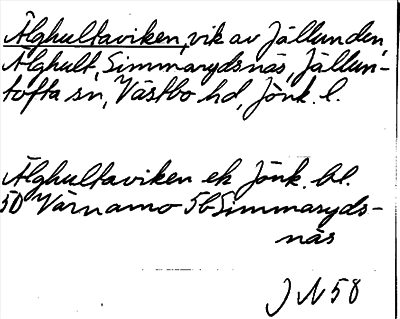 Älghultaviken, vik av Jällunden,
Älghult, Simmarydsnäs, Jällun-
tofta sn, Västbo hd, Jönk. l.
Älghultaviken ek Jönk. bl.
50 Värnamo 5b Simmaryds-
näs
J N 58